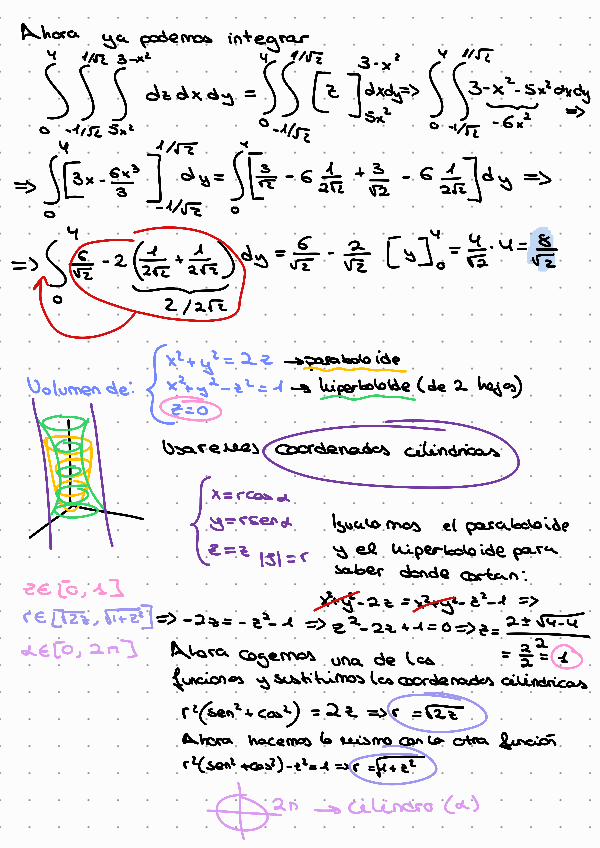 Ahora ya podemos integrar
∫₀⁴ ∫_{-1/√2}^{1/√2} ∫_{5x²}^{3-x²} dz dx dy = ∫₀⁴ ∫_{-1/√2}^{1/√2} [z]_{5x²}^{3-x²} dx dy => ∫₀⁴ ∫_{-1/√2}^{1/√2} 3-x²-5x² dx dy =>
-6x²
=> ∫₀⁴ [3x - 6x³/3]_{-1/√2}^{1/√2} dy = ∫₀⁴ [3/√2 - 6 1/2√2 + 3/√2 - 6 1/2√2] dy =>
=> ∫₀⁴ 6/√2 - 2 (1/2√2 + 1/2√2) dy = 6/√2 - 2/√2 [y]₀⁴ = 4/√2 · 4 = 8/√2
2/2√2
Volumen de: { x²+y² = 2z → paraboloide
x²+y²-z² = 1 → hiperboloide (de 2 hojas)
z=0
Usaremos coordenadas cilíndricas
{ x = r cos α
y = r sen α
z = z |J| = r
Igualamos el paraboloide
y el hiperboloide para
saber donde cortan:
z ∈ [0, 1]
r ∈ [√2z, √1+z²]
α ∈ [0, 2π]
x²+y²-2z = x²+y²-z²-1 =>
=> -2z = -z²-1 => z²-2z+1 = 0 => z = 2±√4-4 / 2
= 2/2 = 1
Ahora cogemos una de las
funciones y sustituimos las coordenadas cilíndricas
r²(sen²+cos²) = 2z => r = √2z
Ahora hacemos lo mismo con la otra función
r²(sen²+cos²)-z² = 1 => r = √1+z²
2π → cilindro (α)